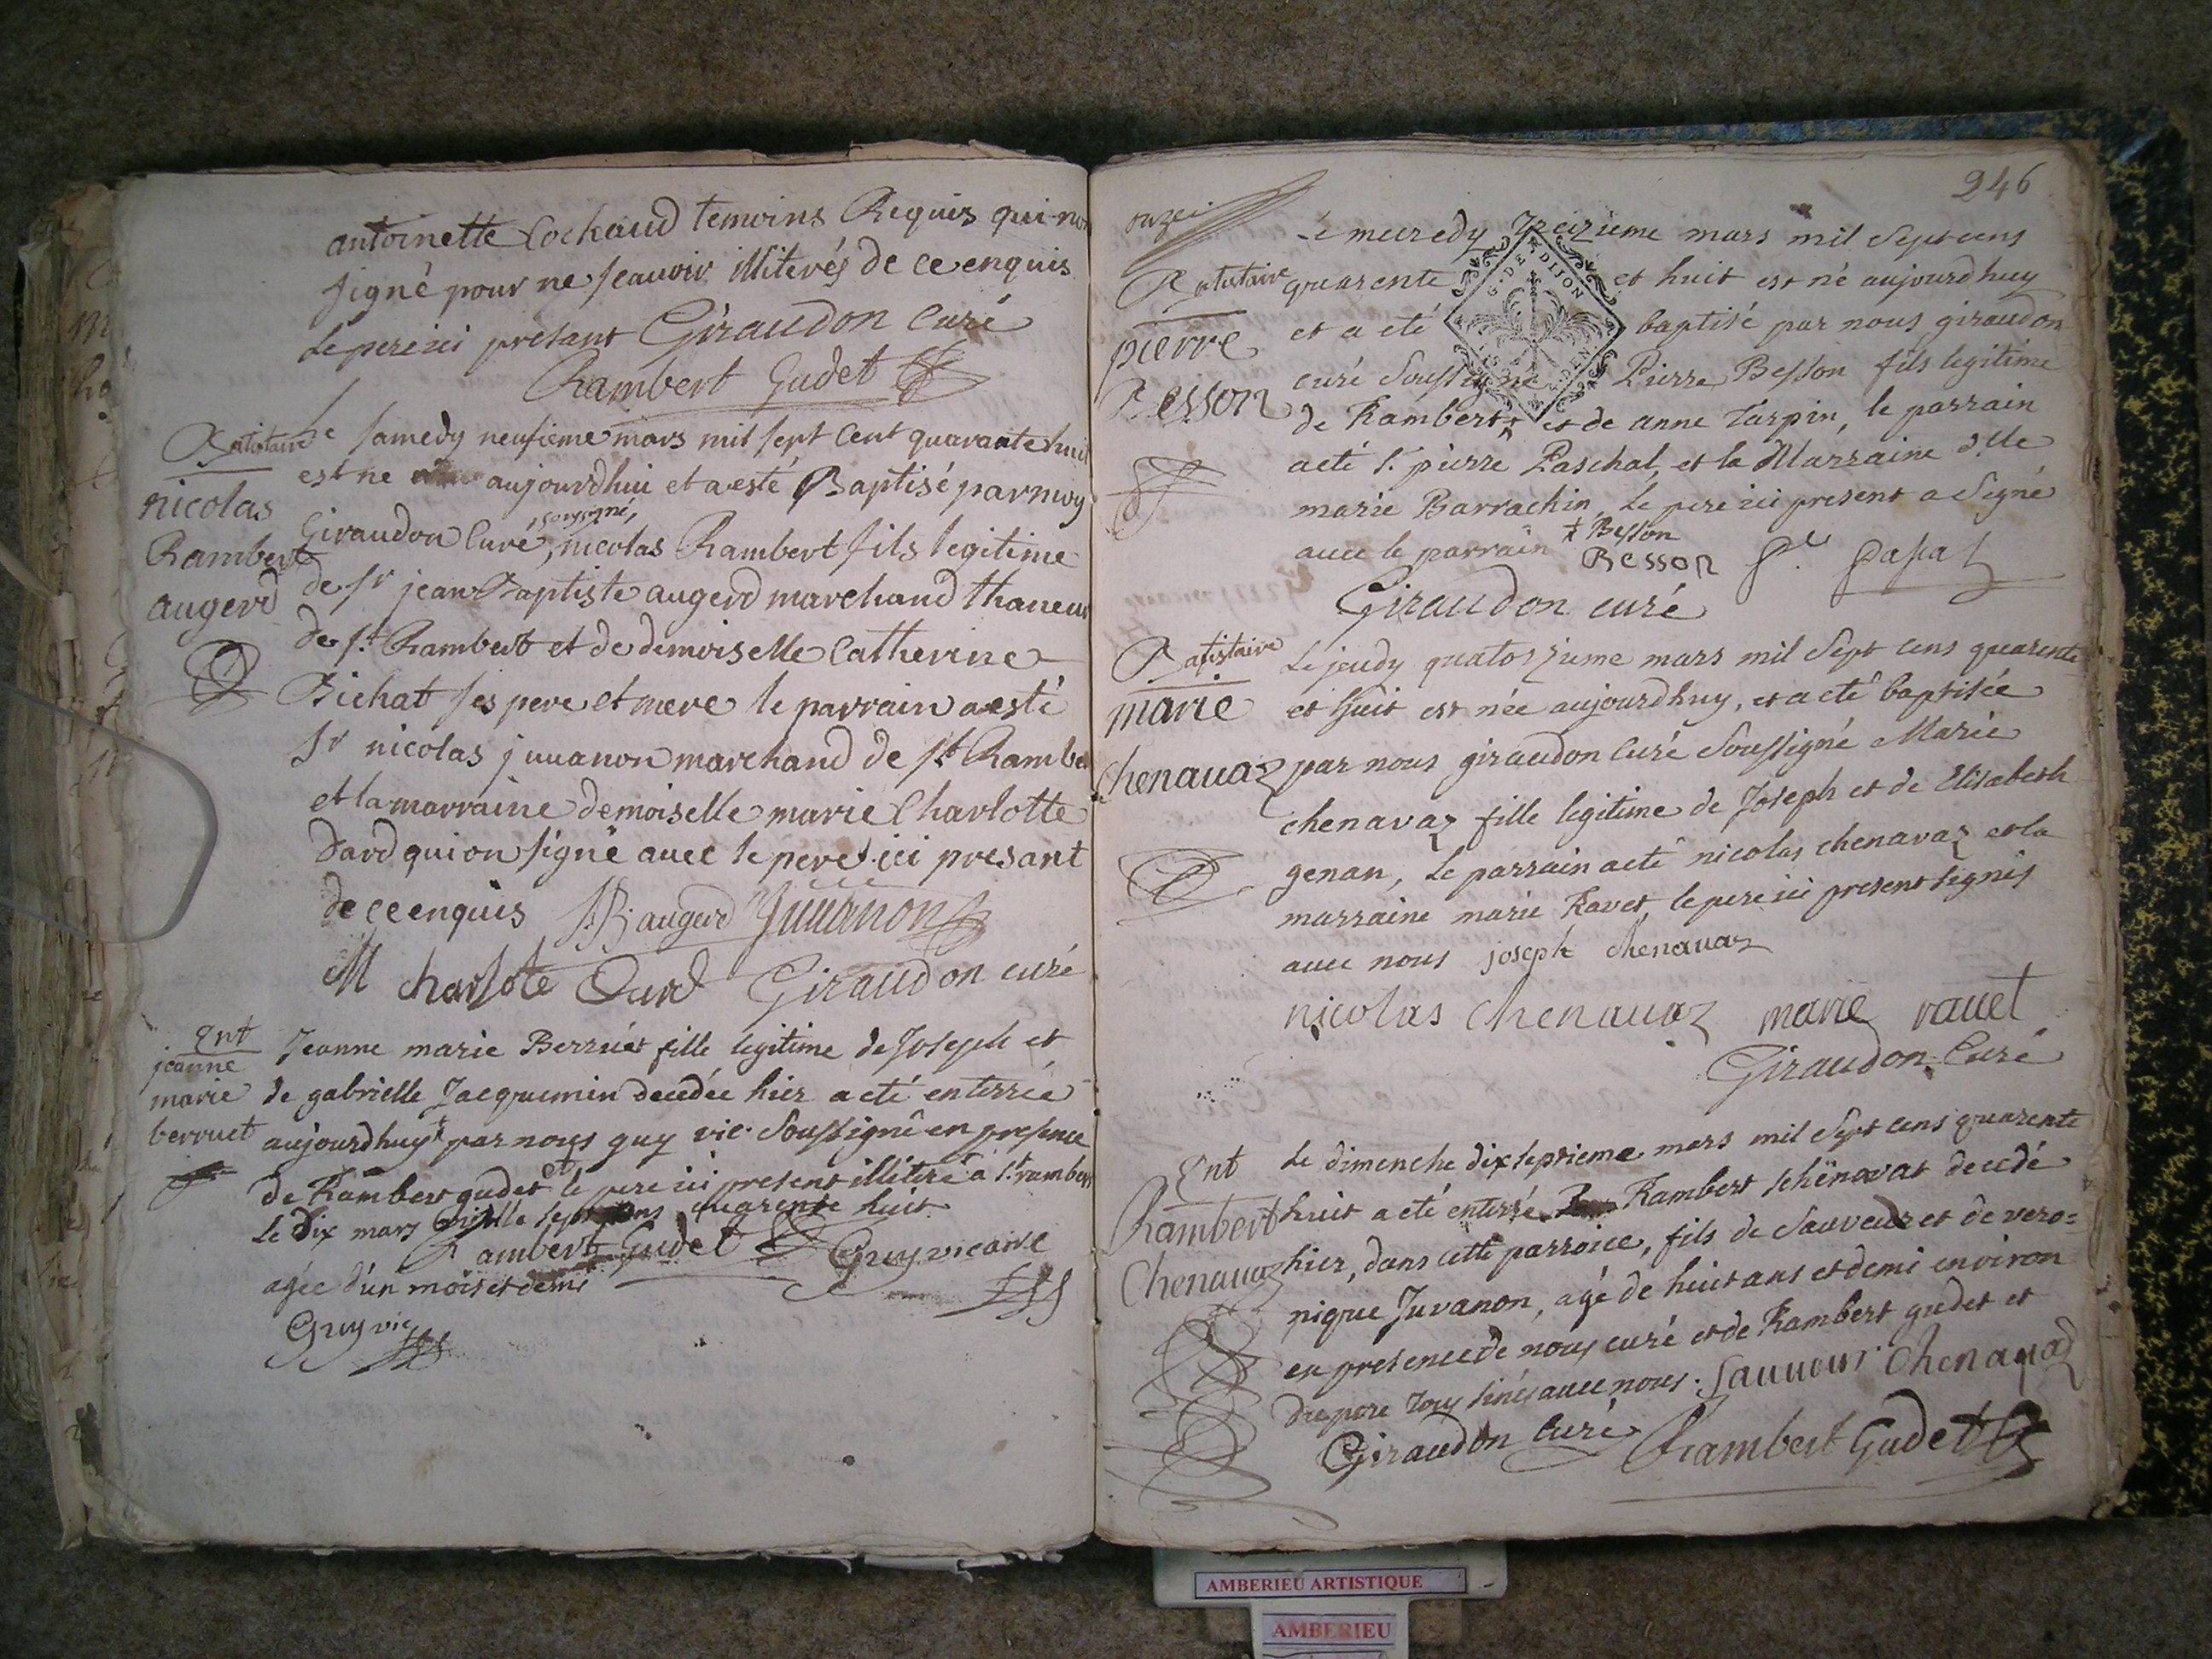 antoinette Cochaud temoins Requis qui no
signé pour ne scauoir illiterés de ce enquis
le pere ici present Giraudon Curé
Rambert Gudet
Batistaire
nicolas
Rambert
augerd
Le samedy neufieme mars mil sept Cent quarante huit
est né aujourdhui et a esté Baptisé par moy
Giraudon Curé, soussigné, nicolas Rambert fils legitime
de sr jean Baptiste augerd marchand thaneur
de st Rambert et de demoiselle Catherine
Bichat ses pere et mere le parrain a esté
sr nicolas juuanon marchand de st Rambe
et la marraine demoiselle marie Charlotte
dard qui on signé auec le pere ici presant
de ce enquis JB augerd Juuanon
M charlote Dard Giraudon curé
Ent
jeanne
marie
berruet
Jeanne marie Berruet fille legitime de Joseph et
de gabrielle Jacquemin decedée hier a eté enterrée
aujourdhuy par nous guy vic. Soussigné en presence
de Rambert gudet et le pere ici present illiteré a st. rambert
Le dix mars mille sept cens quarente huit
Rambert Gudet Guy vicaire
agée d'un mois et demi
Guy vic
246
onze
Batistaire
pierre
Besson
Le mecredy treizieme mars mil Sept cens
quarente et huit est né aujourdhuy
G. DE DIJON
et a eté baptisé par nous giraudon
curé Soussigné Pierre Besson fils legitime
de Rambert ‡ et de anne Tarpin, le parrain
a eté s. pierre Paschal, et la Marraine dlle
marie Barrachin, Le pere ici present a Signé
auec le parrain ‡ Besson
Besson
Giraudon curé
Batistaire
marie
chenauaz
Le jeudy quatorzieme mars mil Sept cens quarente
et huit est née aujourdhuy, et a eté baptisée
par nous giraudon Curé Soussigné Marie
chenavaz fille legitime de Joseph et de Elisabeth
genan, Le parrain a eté nicolas chenavaz et la
marraine marie Ravet, le pere ici present signés
auec nous joseph chenauaz
nicolas chenauaz marie rauet
Giraudon Curé
Ent
Rambert
Chenauaz
Le dimenche dix septieme mars mil Sept cens quarente
huit a eté enterré Rambert schënavas decedé
hier, dans cette parroice, fils de Sauveur et de vero=
nique Juvanon, agé de huit ans et demi environ
en presence de nous curé et de Rambert gudet et
du pere tous sinés auec nous. sauueur chenauaz
Giraudon Curé Rambert Gudet
AMBERIEU ARTISTIQUE
AMBERIEU